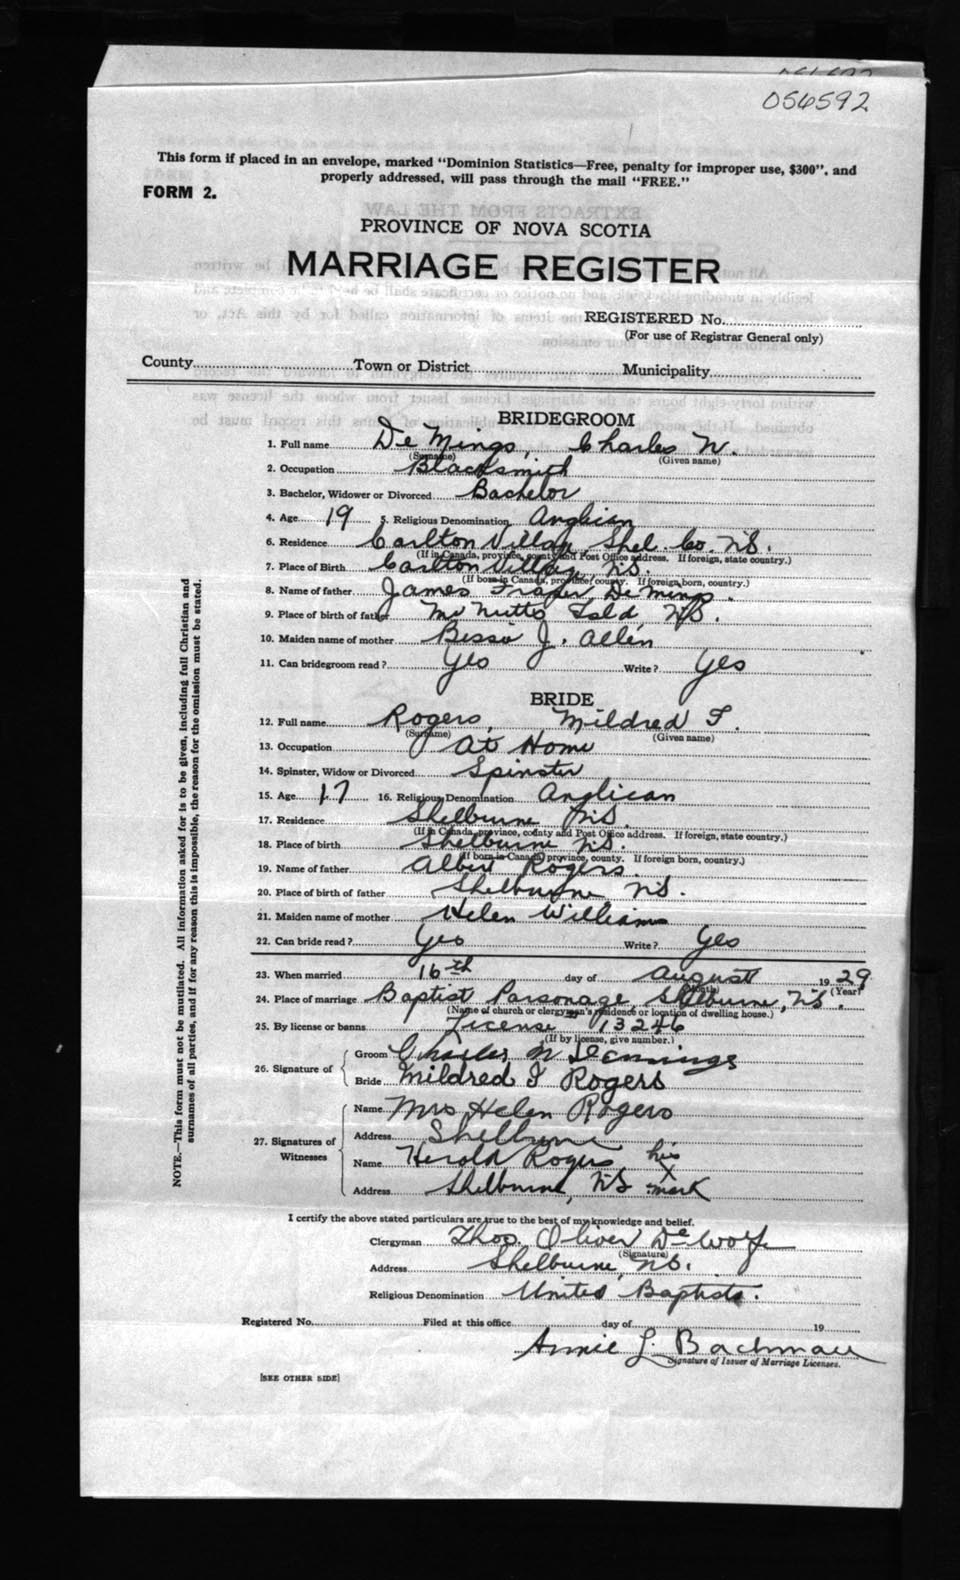 056592
This form if placed in an envelope, marked "Dominion Statistics—Free, penalty for improper use, $300", and
properly addressed, will pass through the mail "FREE."
FORM 2.
PROVINCE OF NOVA SCOTIA
MARRIAGE REGISTER
REGISTERED No.
(For use of Registrar General only)
County Town or District Municipality
BRIDEGROOM
1. Full name De Mings, Charles W.
(Surname) (Given name)
2. Occupation Blacksmith
3. Bachelor, Widower or Divorced Bachelor
4. Age 19 5. Religious Denomination Anglican
6. Residence Carlton Village, Shel. Co. N.S.
(If in Canada, province, county and Post Office address. If foreign, state country.)
7. Place of Birth Carlton Village, N.S.
(If born in Canada, province, county. If foreign born, country.)
8. Name of father James Frazer, De Mings.
9. Place of birth of father Mc Nutts Isld, N.S.
10. Maiden name of mother J. Allen
11. Can bridegroom read? Yes Write? Yes
BRIDE
12. Full name Rogers, Mildred F.
(Surname) (Given name)
13. Occupation At Home
14. Spinster, Widow or Divorced Spinster
15. Age 17 16. Religious Denomination Anglican
17. Residence Shelburne N.S.
(If in Canada, province, county and Post Office address. If foreign, state country.)
18. Place of birth Shelburne N.S.
(If born in Canada, province, county. If foreign born, country.)
19. Name of father Albert Rogers.
20. Place of birth of father Shelburne N.S.
21. Maiden name of mother Helen Williams
22. Can bride read? Yes Write? Yes
23. When married 16th day of August 1929
(Month) (Year)
24. Place of marriage Baptist Parsonage, Shelburne, N.S.
(Name of church or clergyman's residence or location of dwelling house.)
25. By license or banns License 13246
(If by license, give number.)
26. Signature of
Groom Charles W Demings
Bride Mildred F Rogers
27. Signatures of
Witnesses
Name Mrs Helen Rogers
Address Shelburne
Name Herold Rogers his
X
Address Shelburne, N.S. mark
I certify the above stated particulars are true to the best of my knowledge and belief.
Clergyman Thos. Oliver DeWolfe
(Signature)
Address Shelburne, N.S.
Religious Denomination United Baptists.
Registered No. Filed at this office day of 19
Annie L. Bachman
Signature of Issuer of Marriage Licenses.
[SEE OTHER SIDE]
NOTE.—This form must not be mutilated. All information asked for is to be given, including full Christian and
surnames of all parties, and if for any reason this is impossible, the reason for the omission must be stated.